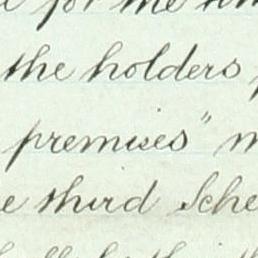 for the
the holders
premises" m
e third Sche